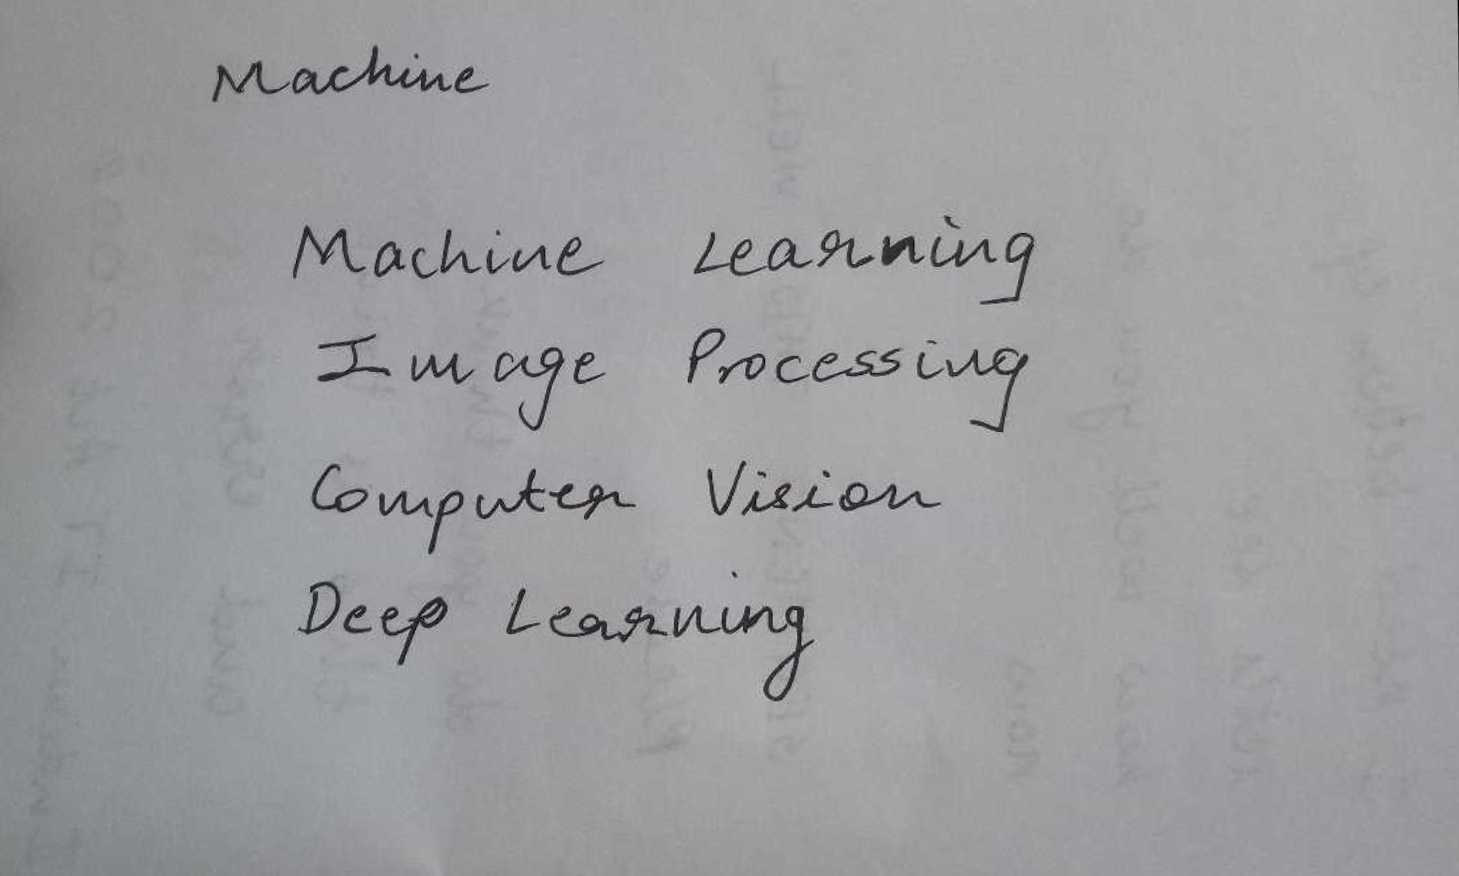 Machine
Machine Learning
Image Processing
Computer Vision
Deep Learning